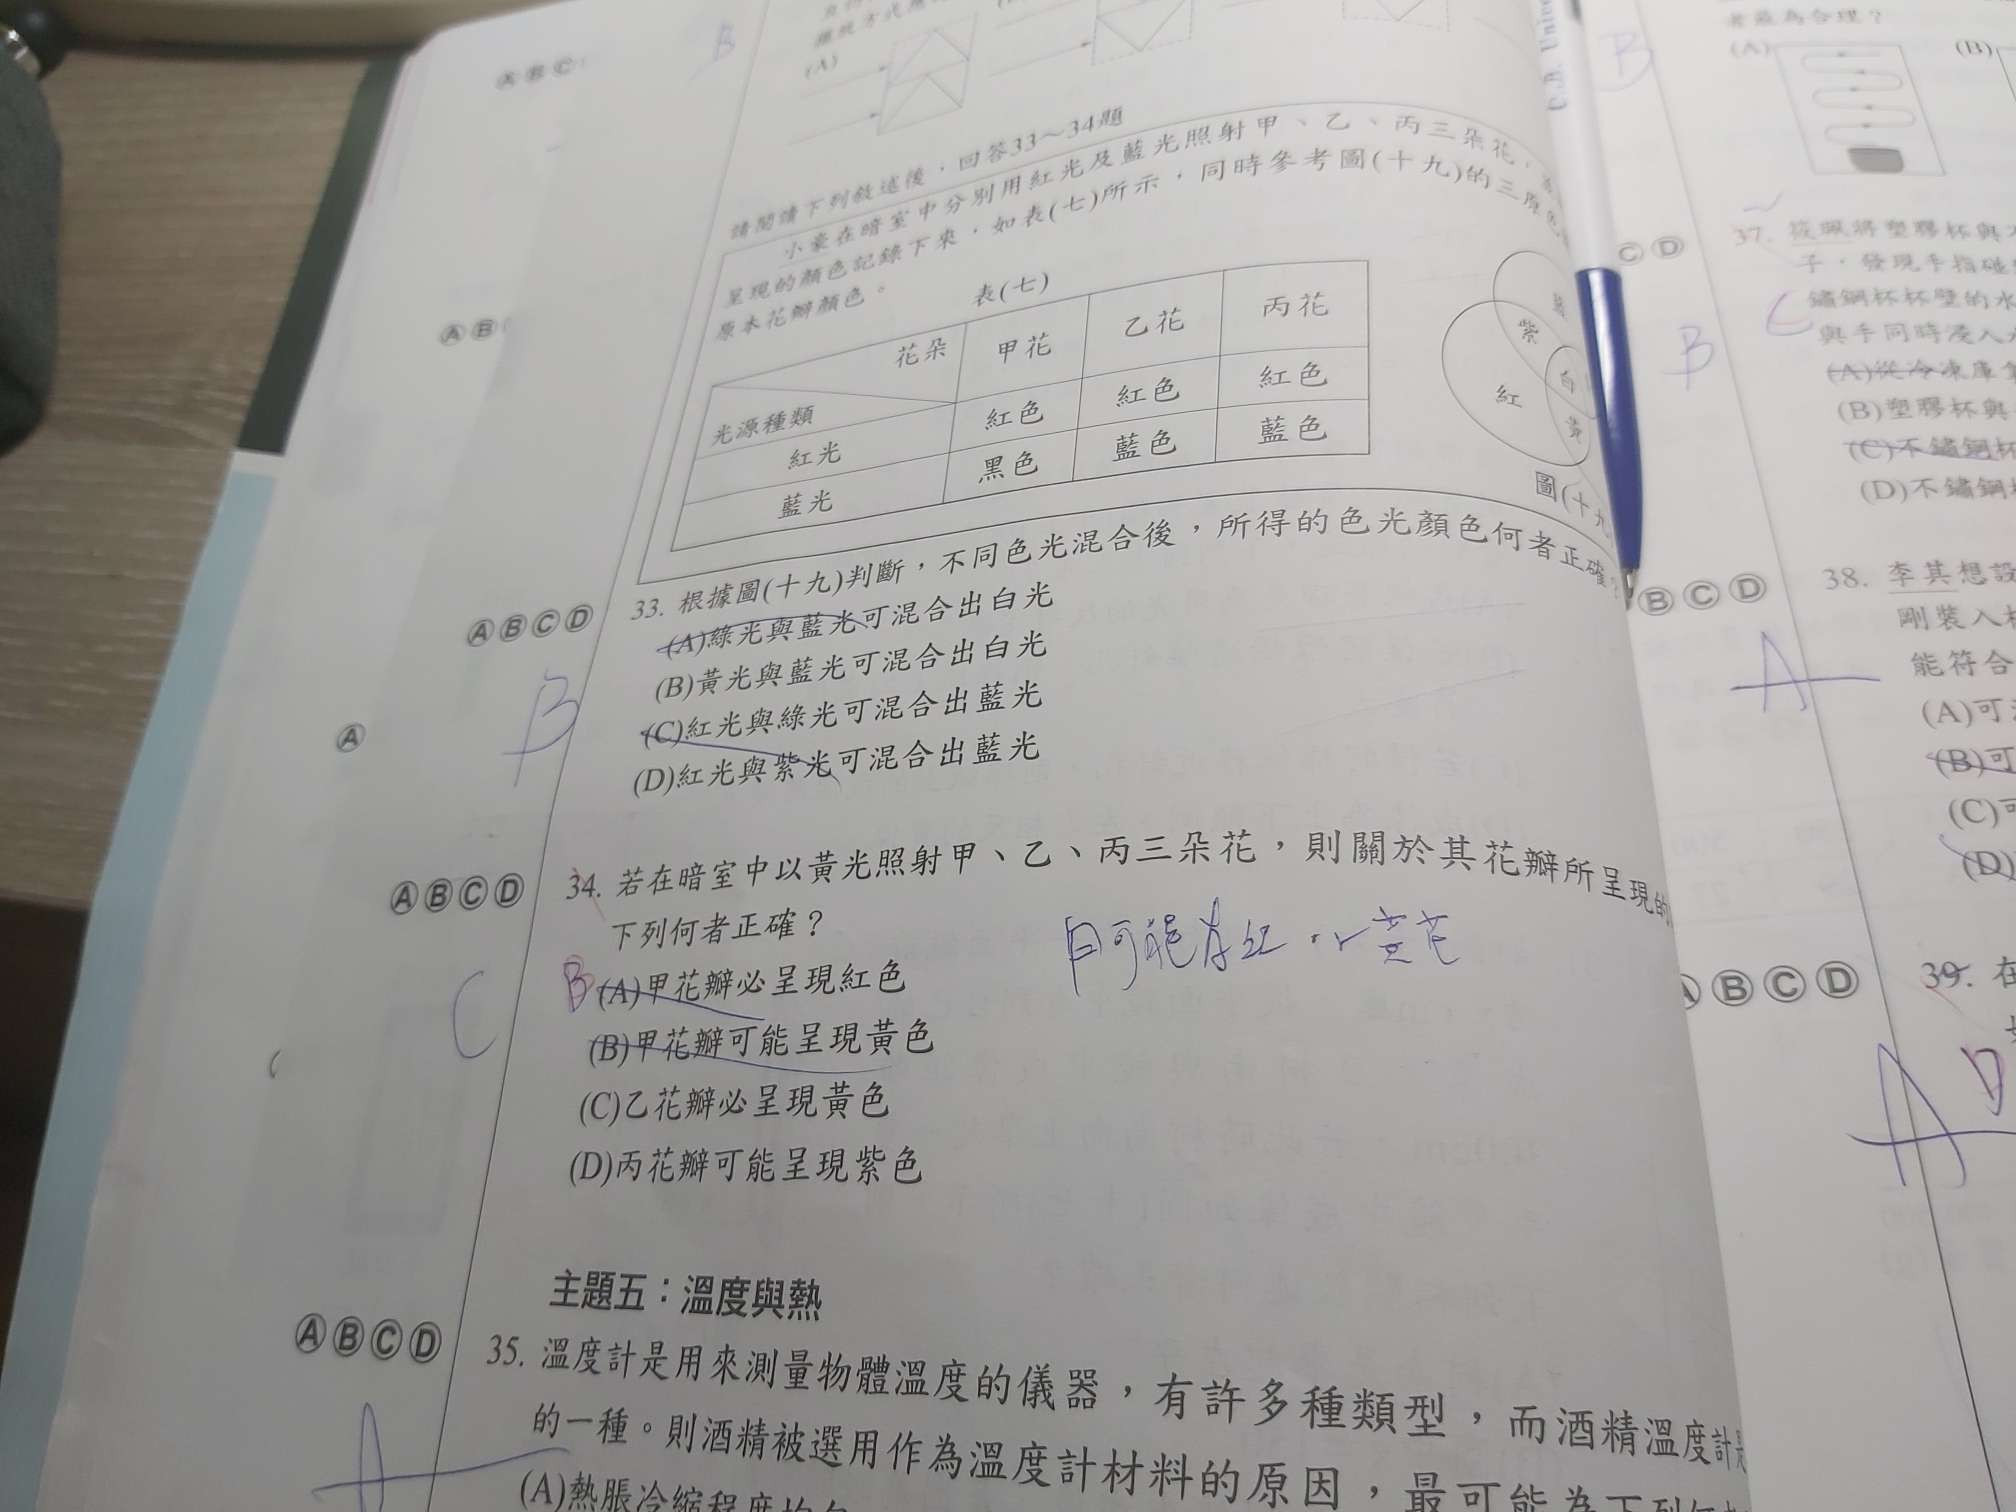 B
(A)
請閱讀下列敘述後，回答33～34題
小豪在暗室中分別用紅光及藍光照射甲、乙、丙三朵花，
呈現的顏色記錄下來，如表(七)所示，同時參考圖(十九)的三原色
原本花瓣顏色。
表(七)
花朵 甲花 乙花 丙花
光源種類
紅光 紅色 紅色 紅色
藍光 黑色 藍色 藍色
紫
白
紅
黃
圖(十九
ⒶⒷⒸⒹ 33. 根據圖(十九)判斷，不同色光混合後，所得的色光顏色何者正確？
(A)綠光與藍光可混合出白光
(B)黃光與藍光可混合出白光
B
(C)紅光與綠光可混合出藍光
(D)紅光與紫光可混合出藍光
ⒶⒷⒸⒹ 34. 若在暗室中以黃光照射甲、乙、丙三朵花，則關於其花瓣所呈現的
下列何者正確？
B (A)甲花瓣必呈現紅色
C
(B)甲花瓣可能呈現黃色
(C)乙花瓣必呈現黃色
(D)丙花瓣可能呈現紫色
主題五：溫度與熱
ⒶⒷⒸⒹ 35. 溫度計是用來測量物體溫度的儀器，有許多種類型，而酒精溫度計是
的一種。則酒精被選用作為溫度計材料的原因，最可能為下列何
A
(A)熱脹冷縮程度均勻
ⒶⒷⒸ
ⒶⒷ
Ⓐ
B
者最為合理？
(A)
(B)
ⒸⒹ 37.
子，發現手指碰
鏽鋼杯杯壁的水
與手同時浸入
B
C
(A)從冷凍庫拿
(B)塑膠杯與
(C)不鏽鋼杯
(D)不鏽鋼
ⒷⒸⒹ 38. 李其想設
剛裝入
A
能符合
(A)可
(B)可
(C)可
(D)
ⒶⒷⒸⒹ 39. 在
A D